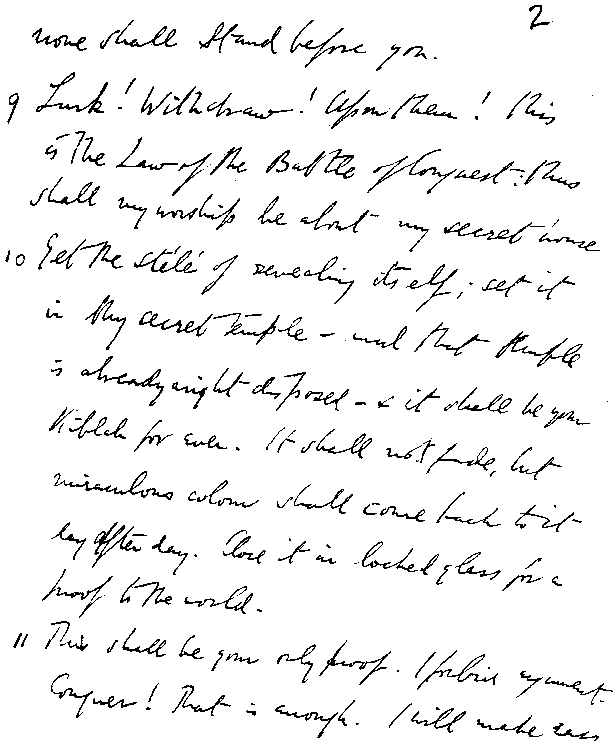 2
none shall stand before you.
9 Lurk! Withdraw! Upon them! this
is the Law of the Battle of Conquest: thus
shall my worship be about my secret house
10 Get the stélé of revealing itself; set it
in thy secret temple – and that temple
is already aright disposed – & it shall be your
Kiblah for ever. It shall not fade, but
miraculous colour shall come back to it
day after day. Close it in locked glass for a
proof to the world.
11 This shall be your only proof. I forbid argument.
Conquer! That is enough. I will make easy